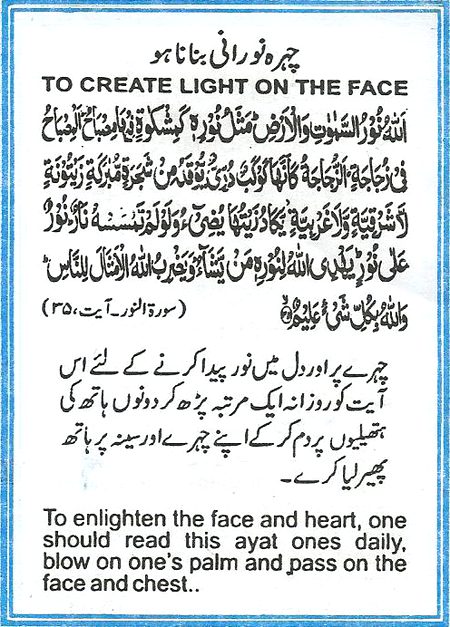 چہرہ نورانی بنانا ہو
TO CREATE LIGHT ON THE FACE
اَللّٰهُ نُوْرُ السَّمٰوٰتِ وَالْاَرْضِ مَثَلُ نُوْرِهٖ كَمِشْكٰوةٍ فِيْهَا مِصْبَاحٌ اَلْمِصْبَاحُ
فِىْ زُجَاجَةٍ اَلزُّجَاجَةُ كَاَنَّهَا كَوْكَبٌ دُرِّىٌّ يُّوْقَدُ مِنْ شَجَرَةٍ مُّبٰرَكَةٍ زَيْتُوْنَةٍ
لَّا شَرْقِيَّةٍ وَّلَا غَرْبِيَّةٍ يَّكَادُ زَيْتُهَا يُضِىْٓءُ وَلَوْ لَمْ تَمْسَسْهُ نَارٌ نُوْرٌ
عَلٰى نُوْرٍ يَهْدِى اللّٰهُ لِنُوْرِهٖ مَنْ يَّشَآءُ وَيَضْرِبُ اللّٰهُ الْاَمْثَالَ لِلنَّاسِ ط
وَاللّٰهُ بِكُلِّ شَىْءٍ عَلِيْمٌ (سورۃ النور۔آیت،۳۵)
چہرے پر اور دل میں نور پیدا کرنے کے لئے اس
آیت کو روزانہ ایک مرتبہ پڑھ کر دونوں ہاتھ کی
ہتھیلیوں پر دم کر کے اپنے چہرے اور سینہ پر ہاتھ
پھیر لیا کرے۔
To enlighten the face and heart, one
should read this ayat ones daily,
blow on one's palm and pass on the
face and chest..